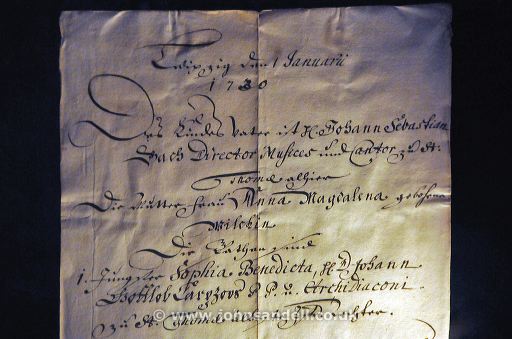 Leipzig den 1 Januarii
1730
Des Kindes Vater ist H. Johann Sebastian
Bach Director Musices und Cantor zu St.
Thomæ alhier
Die Mutter Frau Anna Magdalena gebohrne
Wilckin
Die Pathen sind
1. Jungfer Sophia Benedicta, H. D. Johann
Gottlob Carpzovs P. P. u. Archidiaconi
zu St. Thomas Tochter.
© www.johnsandell.co.uk ©